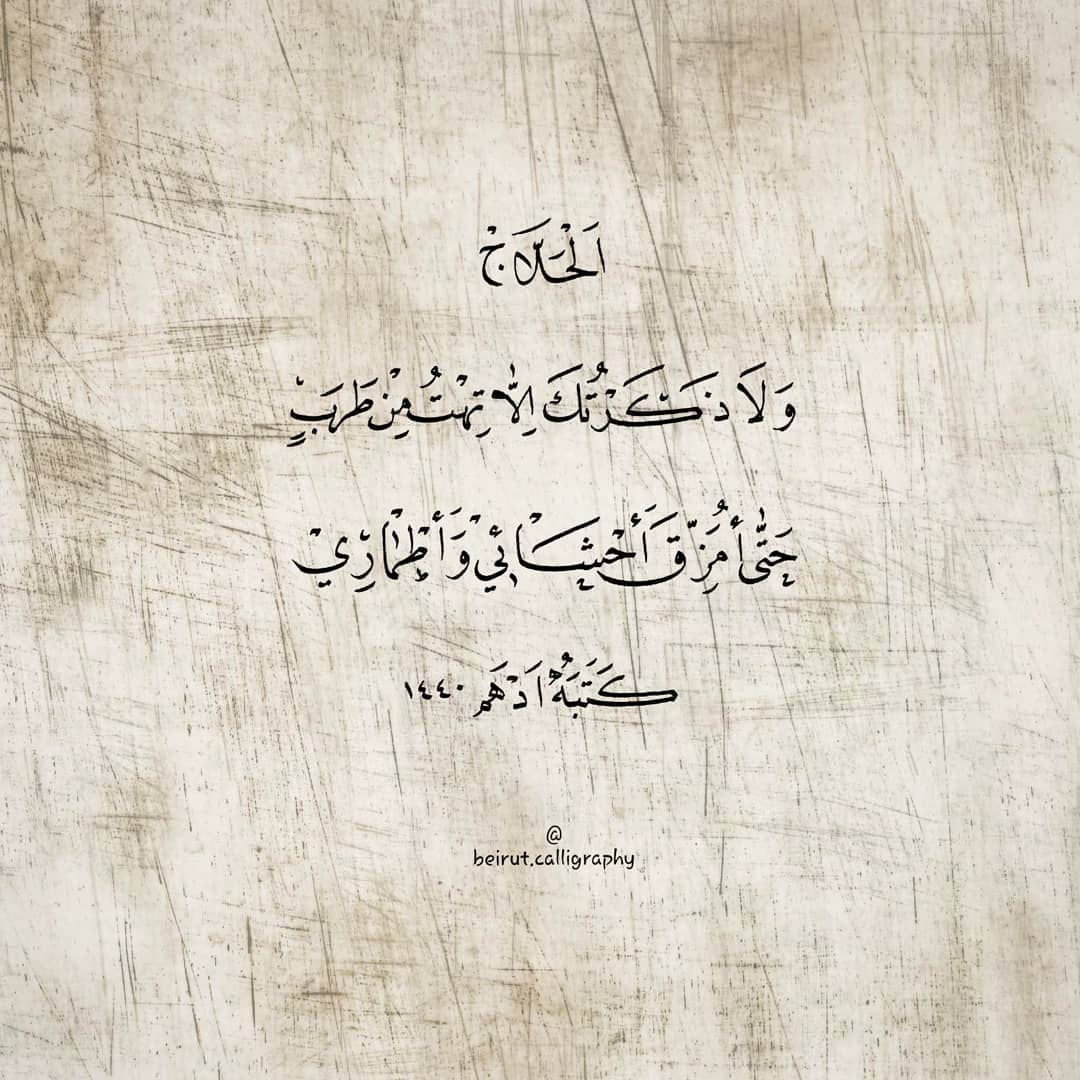 اَلْحَلَّاجْ
وَلَا ذَكَرْتُكَ اِلَّا تِهْتُ مِنْ طَرَبٍ
حَتَّى أُمَزِّقَ أَحْشَائِيْ وَأَطْمَارِيْ
كَتَبَهُ اَدْهَم ١٤٤٠
@
beirut.calligraphy